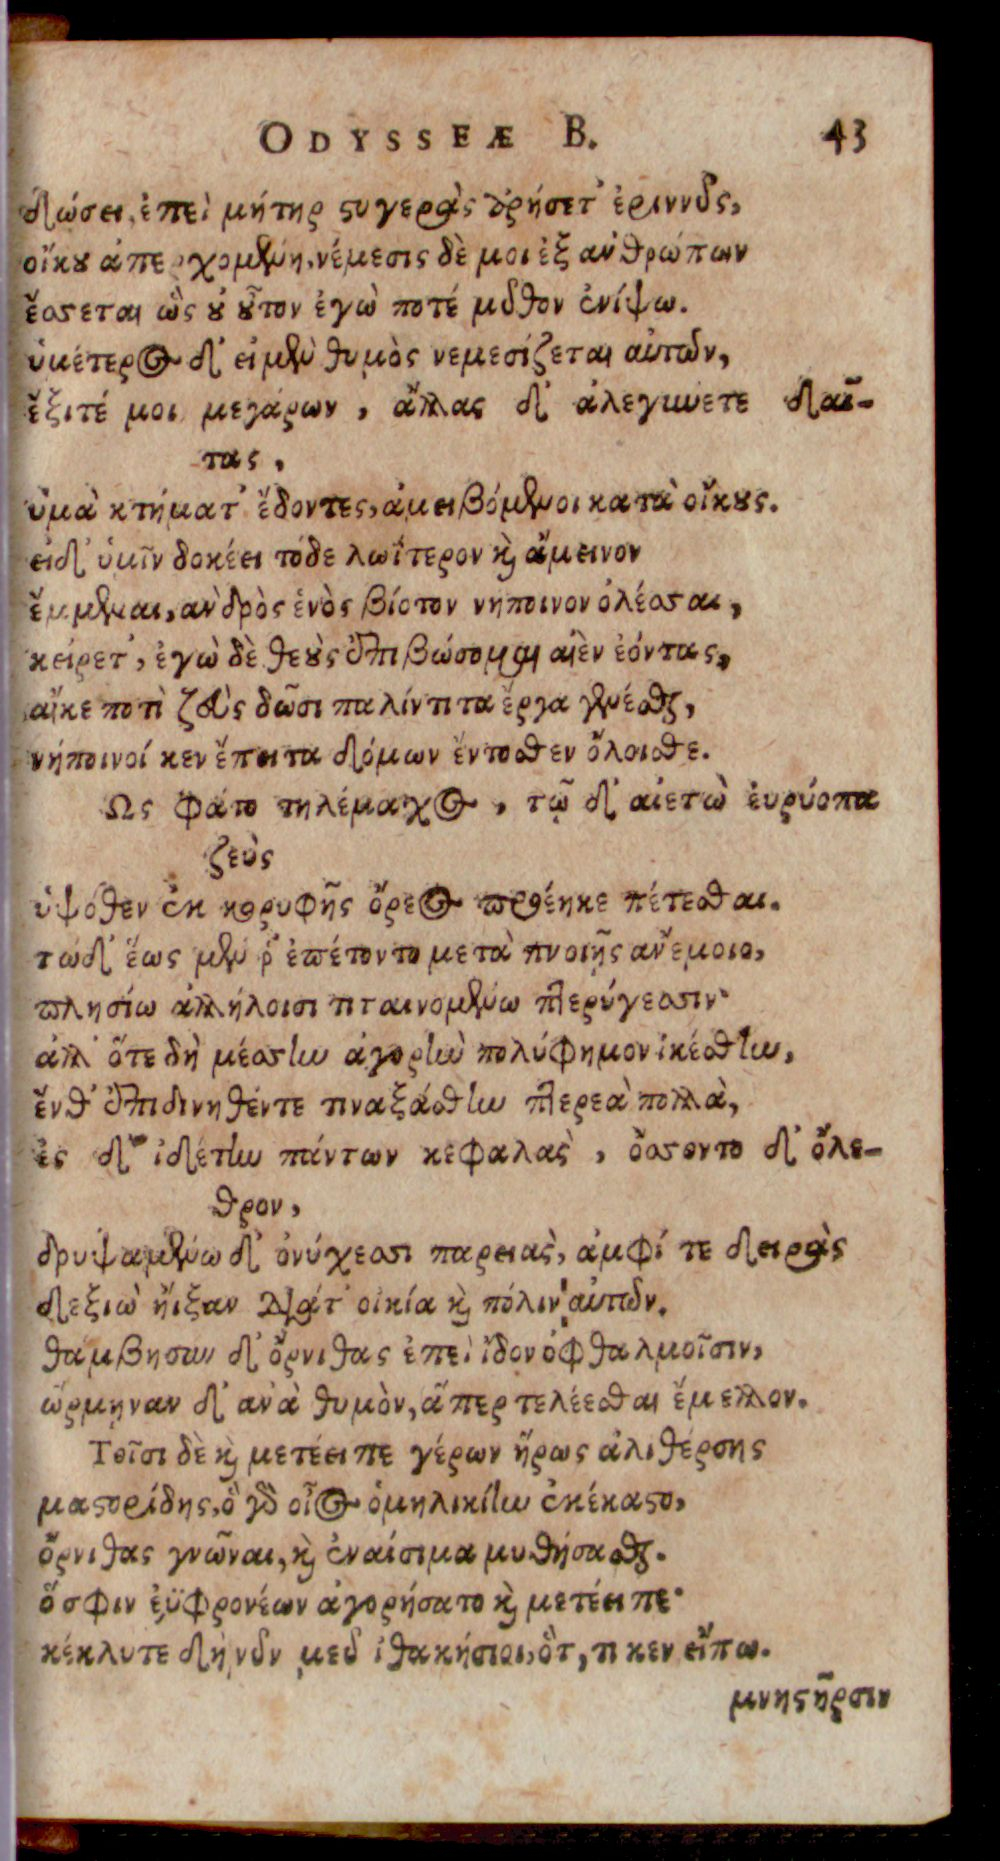 ODYSSEÆ B. 43
δώσει, ἐπεὶ μήτηρ στυγερὰς ἀρήσετ᾽ ἐριννῦς,
οἴκου ἀπερχομένη, νέμεσις δὲ μοι ἐξ ἀνθρώπων
ἔσσεται ὣς οὐ οὗτον ἐγὼ ποτέ μῦθον ἐνίψω.
ὑμέτερος δ᾽ εἰ μὲν θυμὸς νεμεσίζεται αὐτῶν,
ἔξιτέ μοι μεγάρων, ἄλλας δ᾽ ἀλεγύνετε δαῖ-
τας,
ὑμὰ κτήματ᾽ ἔδοντες, ἀμειβόμενοι κατὰ οἴκους.
εἰ δ᾽ ὑμῖν δοκέει τόδε λωΐτερον καὶ ἄμεινον
ἔμμεναι, ἀνδρὸς ἑνὸς βίοτον νήποινον ὀλέσσαι,
κείρετ᾽, ἐγὼ δὲ θεοὺς ἐπιβώσομαι αἰὲν ἐόντας,
αἴκε ποτὶ ζεὺς δῶσι παλίντιτα ἔργα γενέσθαι,
νήποινοί κεν ἔπειτα δόμων ἔντοσθεν ὄλοισθε.
Ως φάτο τηλέμαχος, τῷ δ᾽ αἰετὼ εὐρύοπα
ζεὺς
ὑψόθεν ἐκ κορυφῆς ὄρεος προέηκε πέτεσθαι.
τὼ δ᾽ ἕως μέν ῥ᾽ ἐπέτοντο μετὰ πνοιῇς ἀνέμοιο,
πλησίω ἀλλήλοισι τιταινομένω πτερύγεσσιν·
ἀλλ᾽ ὅτε δὴ μέσσην ἀγορὴν πολύφημον ἱκέσθην,
ἔνθ᾽ ἐπιδινηθέντε τιναξάσθην πτερεὰ πολλὰ,
ἐς δ᾽ ἰδέτην πάντων κεφαλὰς, ὄσσοντο δ᾽ ὄλε-
θρον,
δρυψαμένω δ᾽ ὀνύχεσσι παρειὰς, ἀμφί τε δειρὰς
δεξιὼ ἤιξαν διάτ᾽ οἰκία καὶ πόλιν αὐτῶν.
θάμβησαν δ᾽ ὄρνιθας ἐπεὶ ἴδον ὀφθαλμοῖσιν,
ὥρμηναν δ᾽ ἀνὰ θυμὸν, ἅπερ τελέεσθαι ἔμελλον.
Τοῖσι δὲ καὶ μετέειπε γέρων ἥρως ἁλιθέρσης
μαστορίδης, ὃ γὰρ οἶος ὁμηλικίην ἐκέκαστο,
ὄρνιθας γνῶναι, καὶ ἐναίσιμα μυθήσασθαι.
ὅ σφιν ἐϋφρονέων ἀγορήσατο καὶ μετέειπε·
κέκλυτε δὴ νῦν μευ ἰθακήσιοι, ὅτ, τι κεν εἴπω.
μνηστῆρσιν